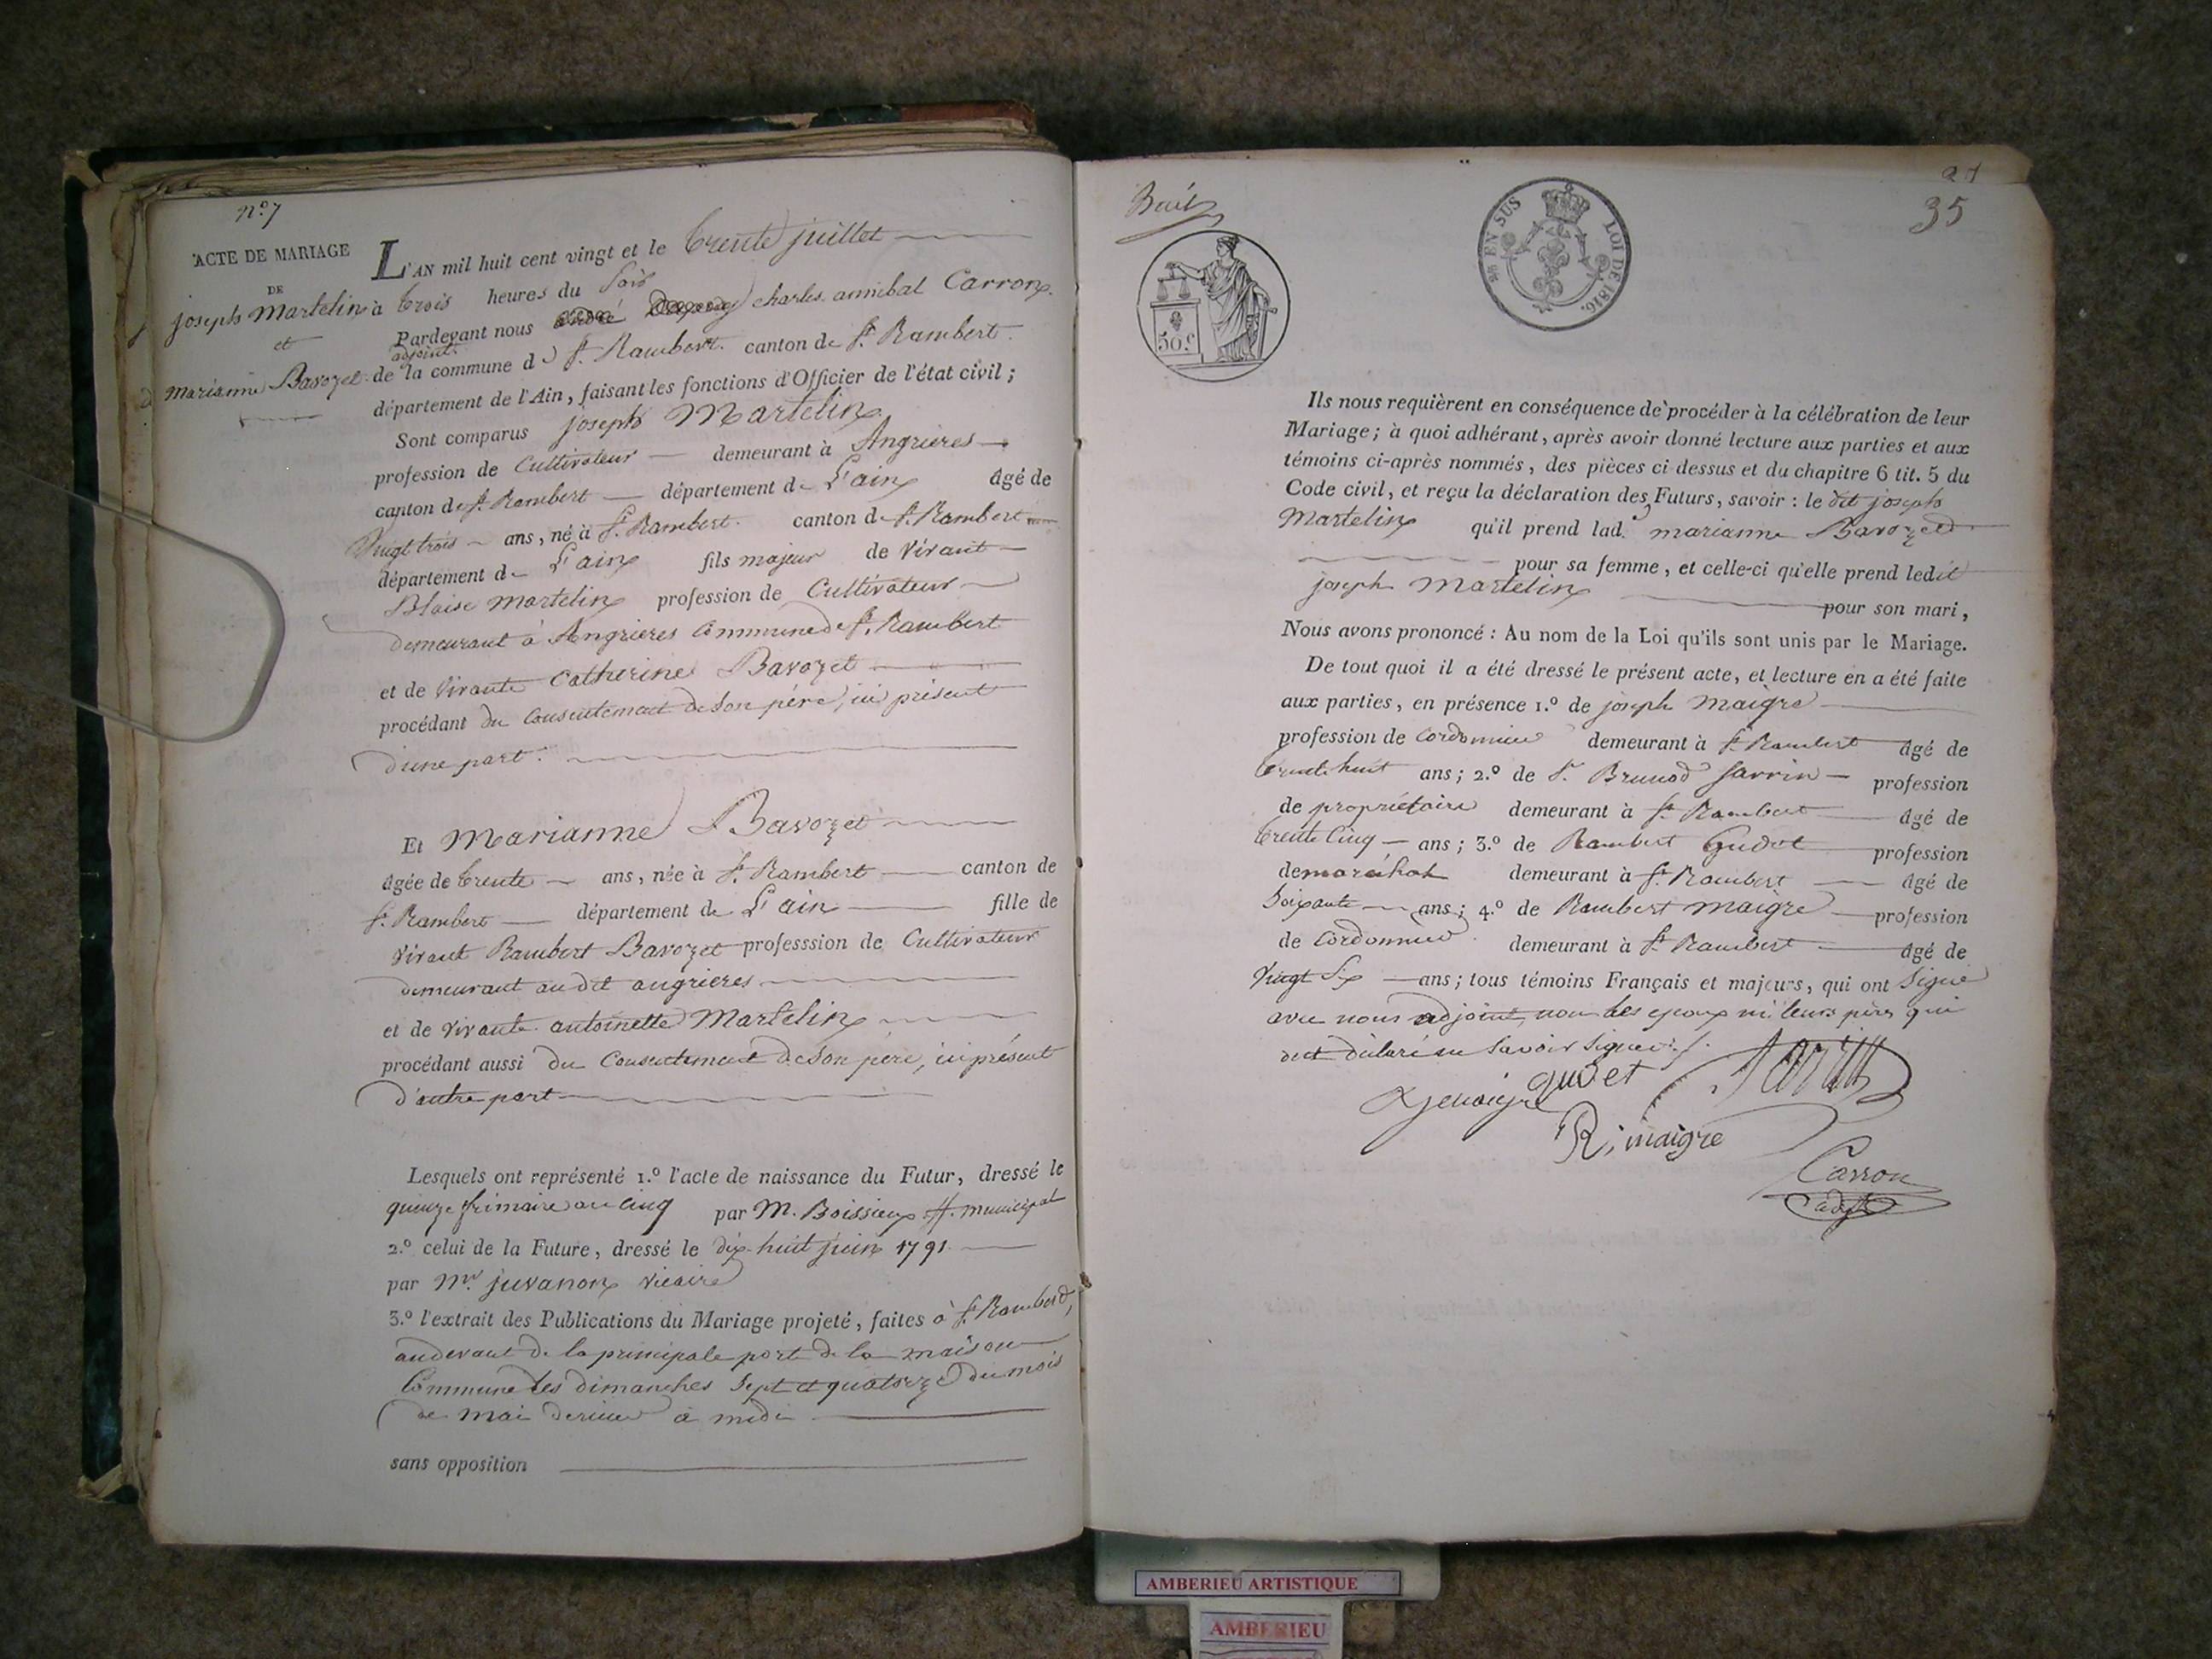 n.º 7
ACTE DE MARIAGE
DE
joseph Martelin
et
marianne Bavozet
L'AN mil huit cent vingt et le trente juillet
à trois heures du soir
Pardevant nous charles annibal Carron
adjoint
de la commune de St. Rambert canton de St. Rambert
département de l'Ain, faisant les fonctions d'Officier de l'état civil ;
Sont comparus joseph Martelin
profession de Cultivateur demeurant à Angrieres
canton de St. Rambert département de L'ain âgé de
Vingt trois ans, né à St. Rambert canton de St. Rambert
département de L'ain fils majeur de vivant
Blaise Martelin profession de Cultivateur
demeurant à Angrieres Commune de St. Rambert
et de vivante Catherine Bavozet
procédant du Consentement de son père, ici présent
d'une part.
Et Marianne Bavozet
âgée de trente ans, née à St. Rambert canton de
St. Rambert département de L'ain fille de
vivant Rambert Bavozet professsion de Cultivateur
demeurant au dit angrieres
et de vivante antoinette Martelin
procédant aussi du Consentement de son père, ici présent
d'autre part
Lesquels ont représenté 1.º l'acte de naissance du Futur, dressé le
quinze frimaire an cinq par M. Boissieux off. municipal
2.º celui de la Future, dressé le dix-huit juin 1791
par Mr. juvanon vicaire
3.º l'extrait des Publications du Mariage projeté, faites à St. Rambert,
au devant de la principale porte de la maison
Commune les dimanches sept et quatorze du mois
de mai dernier à midi
sans opposition
35
50 c
EN SUS LOI DE 1816.
Ils nous requièrent en conséquence de procéder à la célébration de leur
Mariage ; à quoi adhérant, après avoir donné lecture aux parties et aux
témoins ci-après nommés, des pièces ci-dessus et du chapitre 6 tit. 5 du
Code civil, et reçu la déclaration des Futurs, savoir : le dit joseph
Martelin qu'il prend lad. marianne Bavozet
pour sa femme, et celle-ci qu'elle prend ledit
joseph Martelin pour son mari,
Nous avons prononcé : Au nom de la Loi qu'ils sont unis par le Mariage.
De tout quoi il a été dressé le présent acte, et lecture en a été faite
aux parties, en présence 1.º de joseph Maigre
profession de Cordonnier demeurant à St. Rambert âgé de
trente huit ans ; 2.º de Sr. Brunod Sarrin profession
de propriétaire demeurant à St. Rambert âgé de
trente cinq ans ; 3.º de Rambert Gudet profession
de maréchal demeurant à St. Rambert âgé de
Soixante ans ; 4.º de Rambert Maigre profession
de Cordonnier demeurant à St. Rambert âgé de
Vingt Six ans ; tous témoins Français et majeurs, qui ont signé
avec nous adjoint, non les epoux ni leurs pères qui
ont déclaré ne savoir signer.
gudet
R, maigre
Carron
adjt
AMBERIEU ARTISTIQUE
AMBERIEU